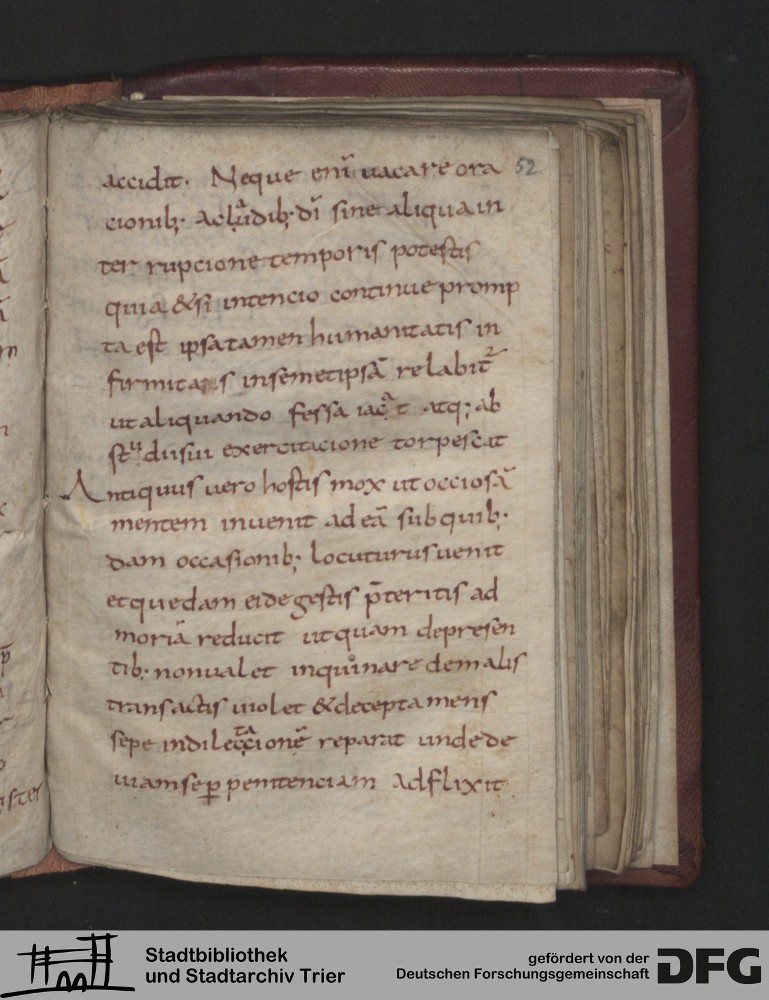 accidit. Neque eni̅ uacare ora 52
cionib; ac laudib; di̅ sine aliqua in
ter rupcione temporis potestis
quia &si intencio continue promp
ta est ipsa tamen humanitatis in
firmitas insemetipsa̅ relabit᷑
ut aliquando fessa iaceat atq; ab
studii sui exercitacione torpescat
Antiquus uero hostis mox ut occiosa̅
mentem inuenit ad ea̅ sub quib;
dam occasionib; locuturus uenit
et quedam ei de gestis p̅teritis ad
moria̅ reducit ut quam de presen
tib; non ualet inquinare de malis
transactis uiolet & decepta mens
sepe in dilectacione̅ reparat unde de
uiam se ꝑ penitenciam adflixit
ster
Stadtbibliothek
und Stadtarchiv Trier
gefördert von der
Deutschen Forschungsgemeinschaft
DFG